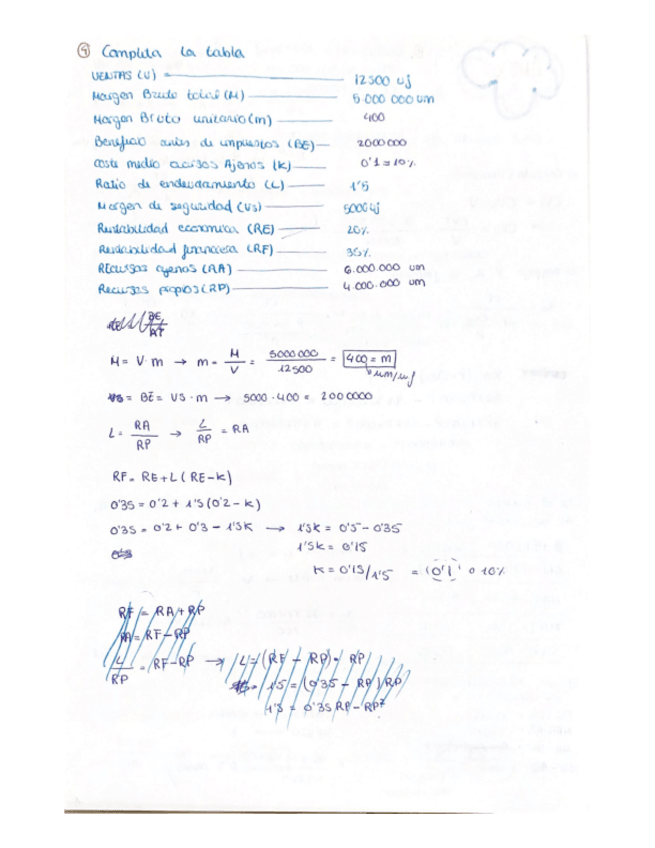 ④ Completa la tabla
VENTAS (V) 12500 uf
Margen Bruto total (M) 5.000 000 um
Margen Bruto unitario (m) 400
Beneficio antes de impuestos (BE) 2000000
coste medio recursos Ajenos (k) 0'1 = 10%
Ratio de endeudamiento (L) 1'5
Margen de seguridad (Vs) 5000 uf
Rentabilidad económica (RE) 20%
Rentabilidad financiera (RF) 35%
REcursos ajenos (AA) 6.000.000 um
Recursos propios (RP) 4.000.000 um
BE/AT
M = V · m → m = M/V = 5000000/12500 = 400 = m
um/uf
VS = BE = VS · m → 5000 · 400 = 2000000
L = RA/RP → L/RP = RA
RF = RE + L (RE - k)
0'35 = 0'2 + 1'5 (0'2 - k)
0'35 = 0'2 + 0'3 - 1'5k → 1'5k = 0'5 - 0'35
1'5k = 0'15
k = 0'15/1'5 = 0'1 o 10%
RF = RA + RP
RA = RF - RP
L/RP = RF - RP → L = (RF - RP) · RP
1'5 = (0'35 - RP) RP
1'5 = 0'35 RP - RP²